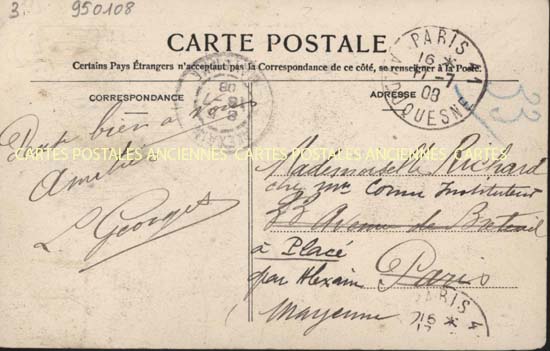 3.
950108
CARTE POSTALE
Certains Pays Étrangers n'acceptant pas la Correspondance de ce côté, se renseigner à la Poste.
CORRESPONDANCE
ADRESSE
PARIS
16 *
17-7
08
DUQUESNE
33
bien à vous
Amitiés
L Georges
Mademoiselle Richard
chez Mr Cornu Instituteur
33 Avenue de Breteuil
à Placé
par Alexain Paris
Mayenne
PARIS 4
CARTES POSTALES ANCIENNES CARTES POSTALES ANCIENNES CARTES POSTALES ANCIENNES